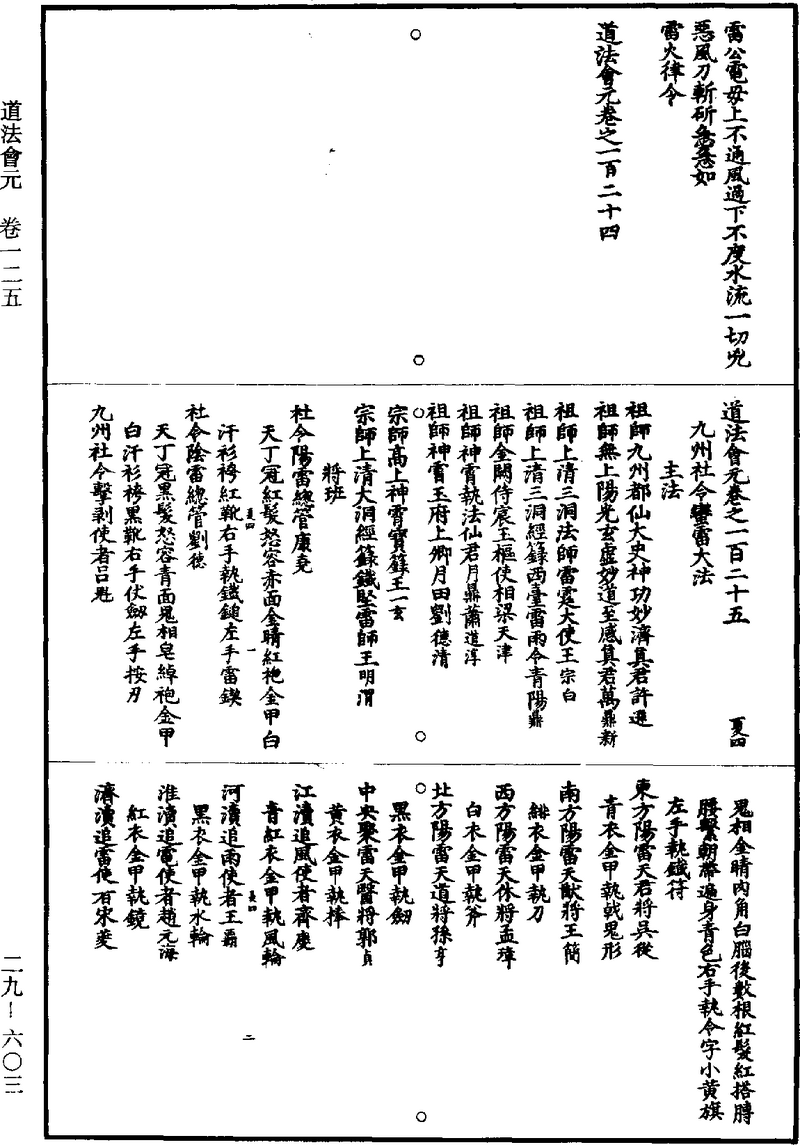 道法會元 卷一二五
二九—六〇三
雷公電母上不通風過下不度水流一切兇
惡風刀斬斫急急如
雷火律令
道法會元卷之一百二十四
道法會元卷之一百二十五 夏四
九州社令蠻雷大法
主法
祖師九州都仙大史神功妙濟真君許遜
祖師無上陽光玄虛妙道至感真君萬鼎新
祖師上清三洞法師雷霆大使王宗白
祖師上清三洞經籙西臺雷雨令青陽鼎
祖師金闕侍宸玉樞使相梁天津
祖師神霄執法仙君月鼎蕭道淳
祖師神霄玉府上卿月田劉德清
宗師高上神霄寶籙王一玄
宗師上清大洞經籙鐵壁雷師王明渭
將班
社令陽雷總管康堯
天丁冠紅髮怒容赤面金睛紅袍金甲白
汗衫袴紅靴右手執鐵鎚左手雷鍥
夏四 一
社令陰雷總管劉德
天丁冠黑髮怒容青面鬼相皂綽袍金甲
白汗衫袴黑靴右手仗劒左手按刃
九州社令擊剥使者呂魁
鬼相金睛肉角白腦後數根紅髮紅搭膊
腰繫朝帶遍身青色右手執令字小黃旗
左手執鐵符
東方陽雷天君將吳從
青衣金甲執戟鬼形
南方陽雷天猷將王簡
緋衣金甲執刀
西方陽雷天休將孟璋
白衣金甲執斧
北方陽雷天道將孫亨
黑衣金甲執劒
中央聚雷天醫將郭貞
黃衣金甲執棒
江瀆追風使者齊慶
青紅衣金甲執風輪
夏四 二
河瀆追雨使者王
黑衣金甲執水輪
淮瀆追電使者趙元海
紅衣金甲執鏡
濟瀆追雷使者宋